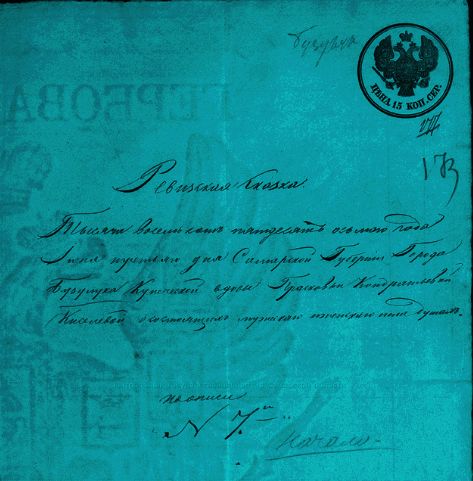 Бузулук
ЦѢНА 15 КОП. СЕР.
173
ГЕРБОВА
Ревизская Сказка.
Тысяча восемьсотъ пятдесятъ осьмого года
Iюня третьяго дня Самарской Губернiи Города
Бузулука Купеческой вдовы Прасковьи Кондратьевой
Киселевой о состоящихъ мужскаго и женскаго пола душахъ.
по описи
N 7.
Начало.